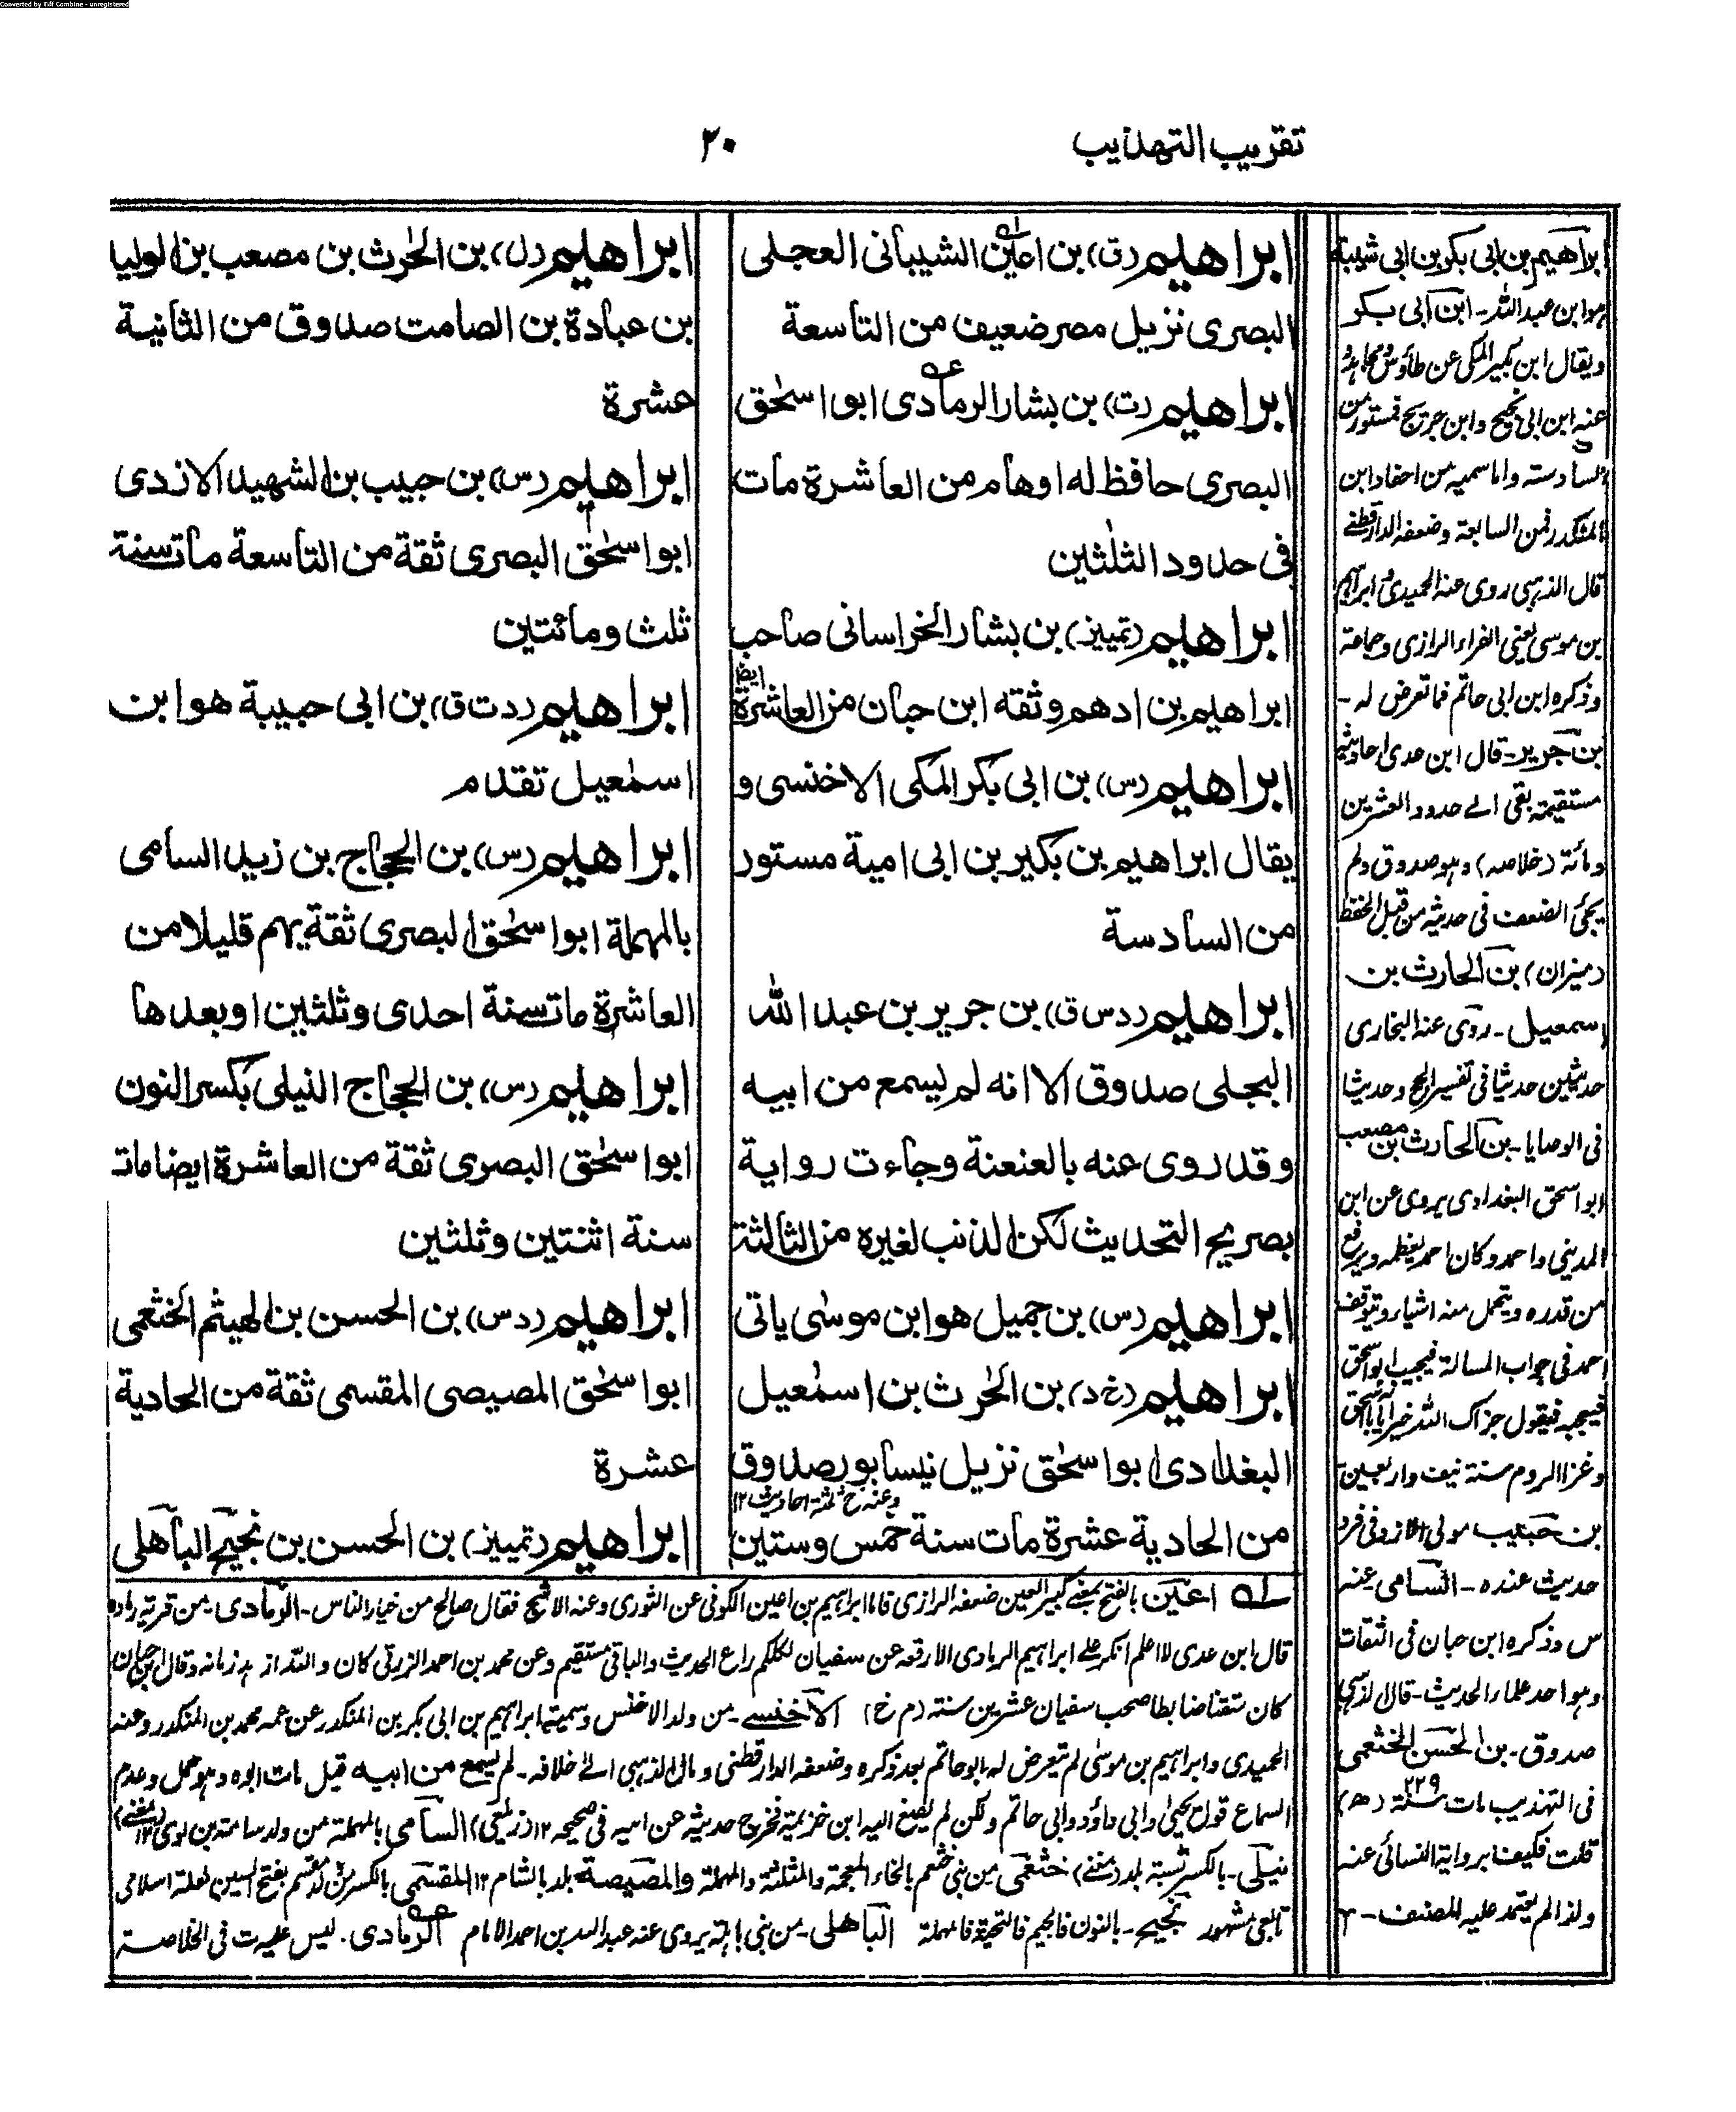 Converted by Tiff Combine - unregistered
تقريب التهذيب
٢٠
ابراهيم (ق) بن اعين الشيبانى العجلى
البصرى نزيل مصر ضعيف من التاسعة
ابراهيم (دت) بن بشار الرمادى ابو اسحٰق
البصرى حافظ له اوهام من العاشرة مات
فى حدود الثلٰثين
ابراهيم (تمييز) بن بشار الخراسانى صاحب
ابراهيم بن ادهم وثقه ابن حبان من العاشرة ايضا
ابراهيم (س) بن ابى بكر المكى الاخنسى و
يقال ابراهيم بن بكير بن ابى امية مستور
من السادسة
ابراهيم (د س ق) بن جرير بن عبد الله
البجلى صدوق الا انه لم يسمع من ابيه
وقد روى عنه بالعنعنة وجاءت رواية
بصريح التحديث لكن الذنب لغيره من الثالثة
ابراهيم (س) بن جميل هو ابن موسٰى ياتى
ابراهيم (خ د) بن الحٰرث بن اسمٰعيل
البغدادى ابو اسحٰق نزيل نيسابور صدوق
وعنه خ ثلثة احاديث ١٢
من الحادية عشرة مات سنة خمس وستين
ابراهيم (ل) بن الحٰرث بن مصعب بن الوليد
بن عبادة بن الصامت صدوق من الثانية
عشرة
ابراهيم (س) بن حبيب بن الشهيد الازدى
ابو اسحٰق البصرى ثقة من التاسعة مات سنة
ثلث ومائتين
ابراهيم (د ت ق) بن ابى حبيبة هو ابن
اسمٰعيل تقدم
ابراهيم (س) بن الحجاج بن زيد السامى
بالمهملة ابو اسحٰق البصرى ثقة يهم قليلا من
العاشرة مات سنة احدى وثلثين او بعدها
ابراهيم (س) بن الحجاج النيلى بكسر النون
ابو اسحٰق البصرى ثقة من العاشرة ايضا مات
سنة اثنتين وثلثين
ابراهيم (د س) بن الحسن بن الهيثم الخثعمى
ابو اسحٰق المصيصى المقسمى ثقة من الحادية
عشرة
ابراهيم (تمييز) بن الحسن بن نجيح الباهلى
ابراهيم بن ابى بكر بن ابى شيبة
هو ابن عبد الله - ابن ابى بكر
ويقال ابن بكير المكى عن طاؤس ومجاهد و
عنه ابن ابى نجيح وابن جريج مستور من
السادسة واما سميه من احفاد ابن
المنكدر فمن السابعة وضعفه الدارقطنے
قال الذهبى روى عنه الحميدى وابراهيم
بن موسى يعنى الفراء الرازى وجماعة
وذكره ابن ابى حاتم فما تعرض له -
بن جرير - قال ابن عدى احاديثه
مستقيمة بقى الے حدود العشرين
ومائة (خلاصه) وهو صدوق ولم
يجئ الضعف فى حديثه من قبل الحفظ
(ميزان) بن الحارث بن
اسمعيل - روى عنه البخارى
حديثين حديثا فى تفسير الحج وحديثا
فى الوصايا - بن الحارث بن مصعب
ابو اسحق البغدادى يروى عن ابن
المدينى واحمد وكان احمد يعظمه ويرفع
من قدره ويحتمل منه اشياء ويتوقف
احمد فى جواب المسالة فيجيب ابو اسحق
فيعجبه فيقول جزاك الله خيرا يا ابا اسحق
وغزا الروم سنة نيف واربعين
بن حبيب مولى الازد فى فرد
حديث عنده - السامى عنه
س وذكره ابن حبان فى الثقات
وهو احد علماء الحديث - قال الذهبى
صدوق - بن الحسن الخثعمى
فى التهذيب مات سنة ٢٢٩ (ھ)
قلت فكيف برواية النسائى عنه
ولذا لم يعتمد عليه المصنف - ٢
له اعين بالفتح بمعنے كبير العين ضعفه الرازى قاما ابراهيم بن اعين الكوفى عن الثورى وعنه الاشج فقال صالح من خيار الناس - الرمادى - من قرية رماده
قال ابن عدى لا اعلم انكر علے ابراهيم الرمادى الا رفعه عن سفيان لكلكم راع الحديث والباقى مستقيم وعن محمد بن احمد الزرقى كان والله از هد زمانه وقال ابن حبان
كان متقنا ضابطا صحب سفيان عشرين سنة (م خ) الاخنسے - من ولد الاخنس وسميه ابراهيم بن ابى بكر بن المنكدر عن عمه محمد بن المنكدر وعنه
الحميدى وابراهيم بن موسٰى لم يتعرض له ابو حاتم بعد ذكره وضعفه الدارقطنى ومال الذهبى الے خلافه - لم يسمع من ابيه قيل مات ابوه وهو حمل وعدم
السماع قول يحيٰى وابى داؤد وابى حاتم ولكن لم يصغ اليه ابن خزيمة فخرج حديثه عن ابيه فى صحيحه ١٢ (زيلعى) السامى بالمهملة من ولد سامة بن لوى (مغنے) ١٢
نيلى - بالكسر نسبة بلد (مغنے) خثعمى من بنى خثعم بالخاء المعجمة والمثلثة والمهملة والمصيصة بلد بالشام ١٢ المقسمى بالكسر من ولد مقسم بفتح السين لعله اسلامى
تابعى مشهور نجيح - بالنون فالجيم فالتحتية فالمهملة الباهلى - من بنى باهلة يروى عنه عبد الله بن احمد الامام الرمادى . ليس عليه ت فى الخلاصة